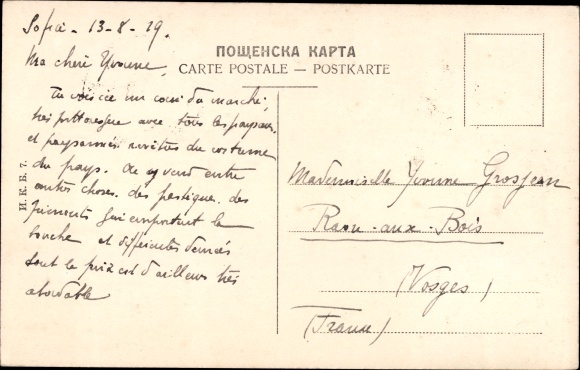 Sofia - 13-8-19.
ПОЩЕНСКА КАРТА
CARTE POSTALE — POSTKARTE
Ma chère Yvonne,
Tu vois ici un coin du marché,
très pittoresque avec tous les paysans
et paysannes revêtus du costume
du pays. On y vend entre
autres choses, des pastèques, des
piments qui emportent la
bouche et différentes denrées
tout le prix est d'ailleurs très
abordable
И. К. Б. 7.
Mademoiselle Yvonne Grosjean
Raon-aux-Bois
(Vosges)
(France)